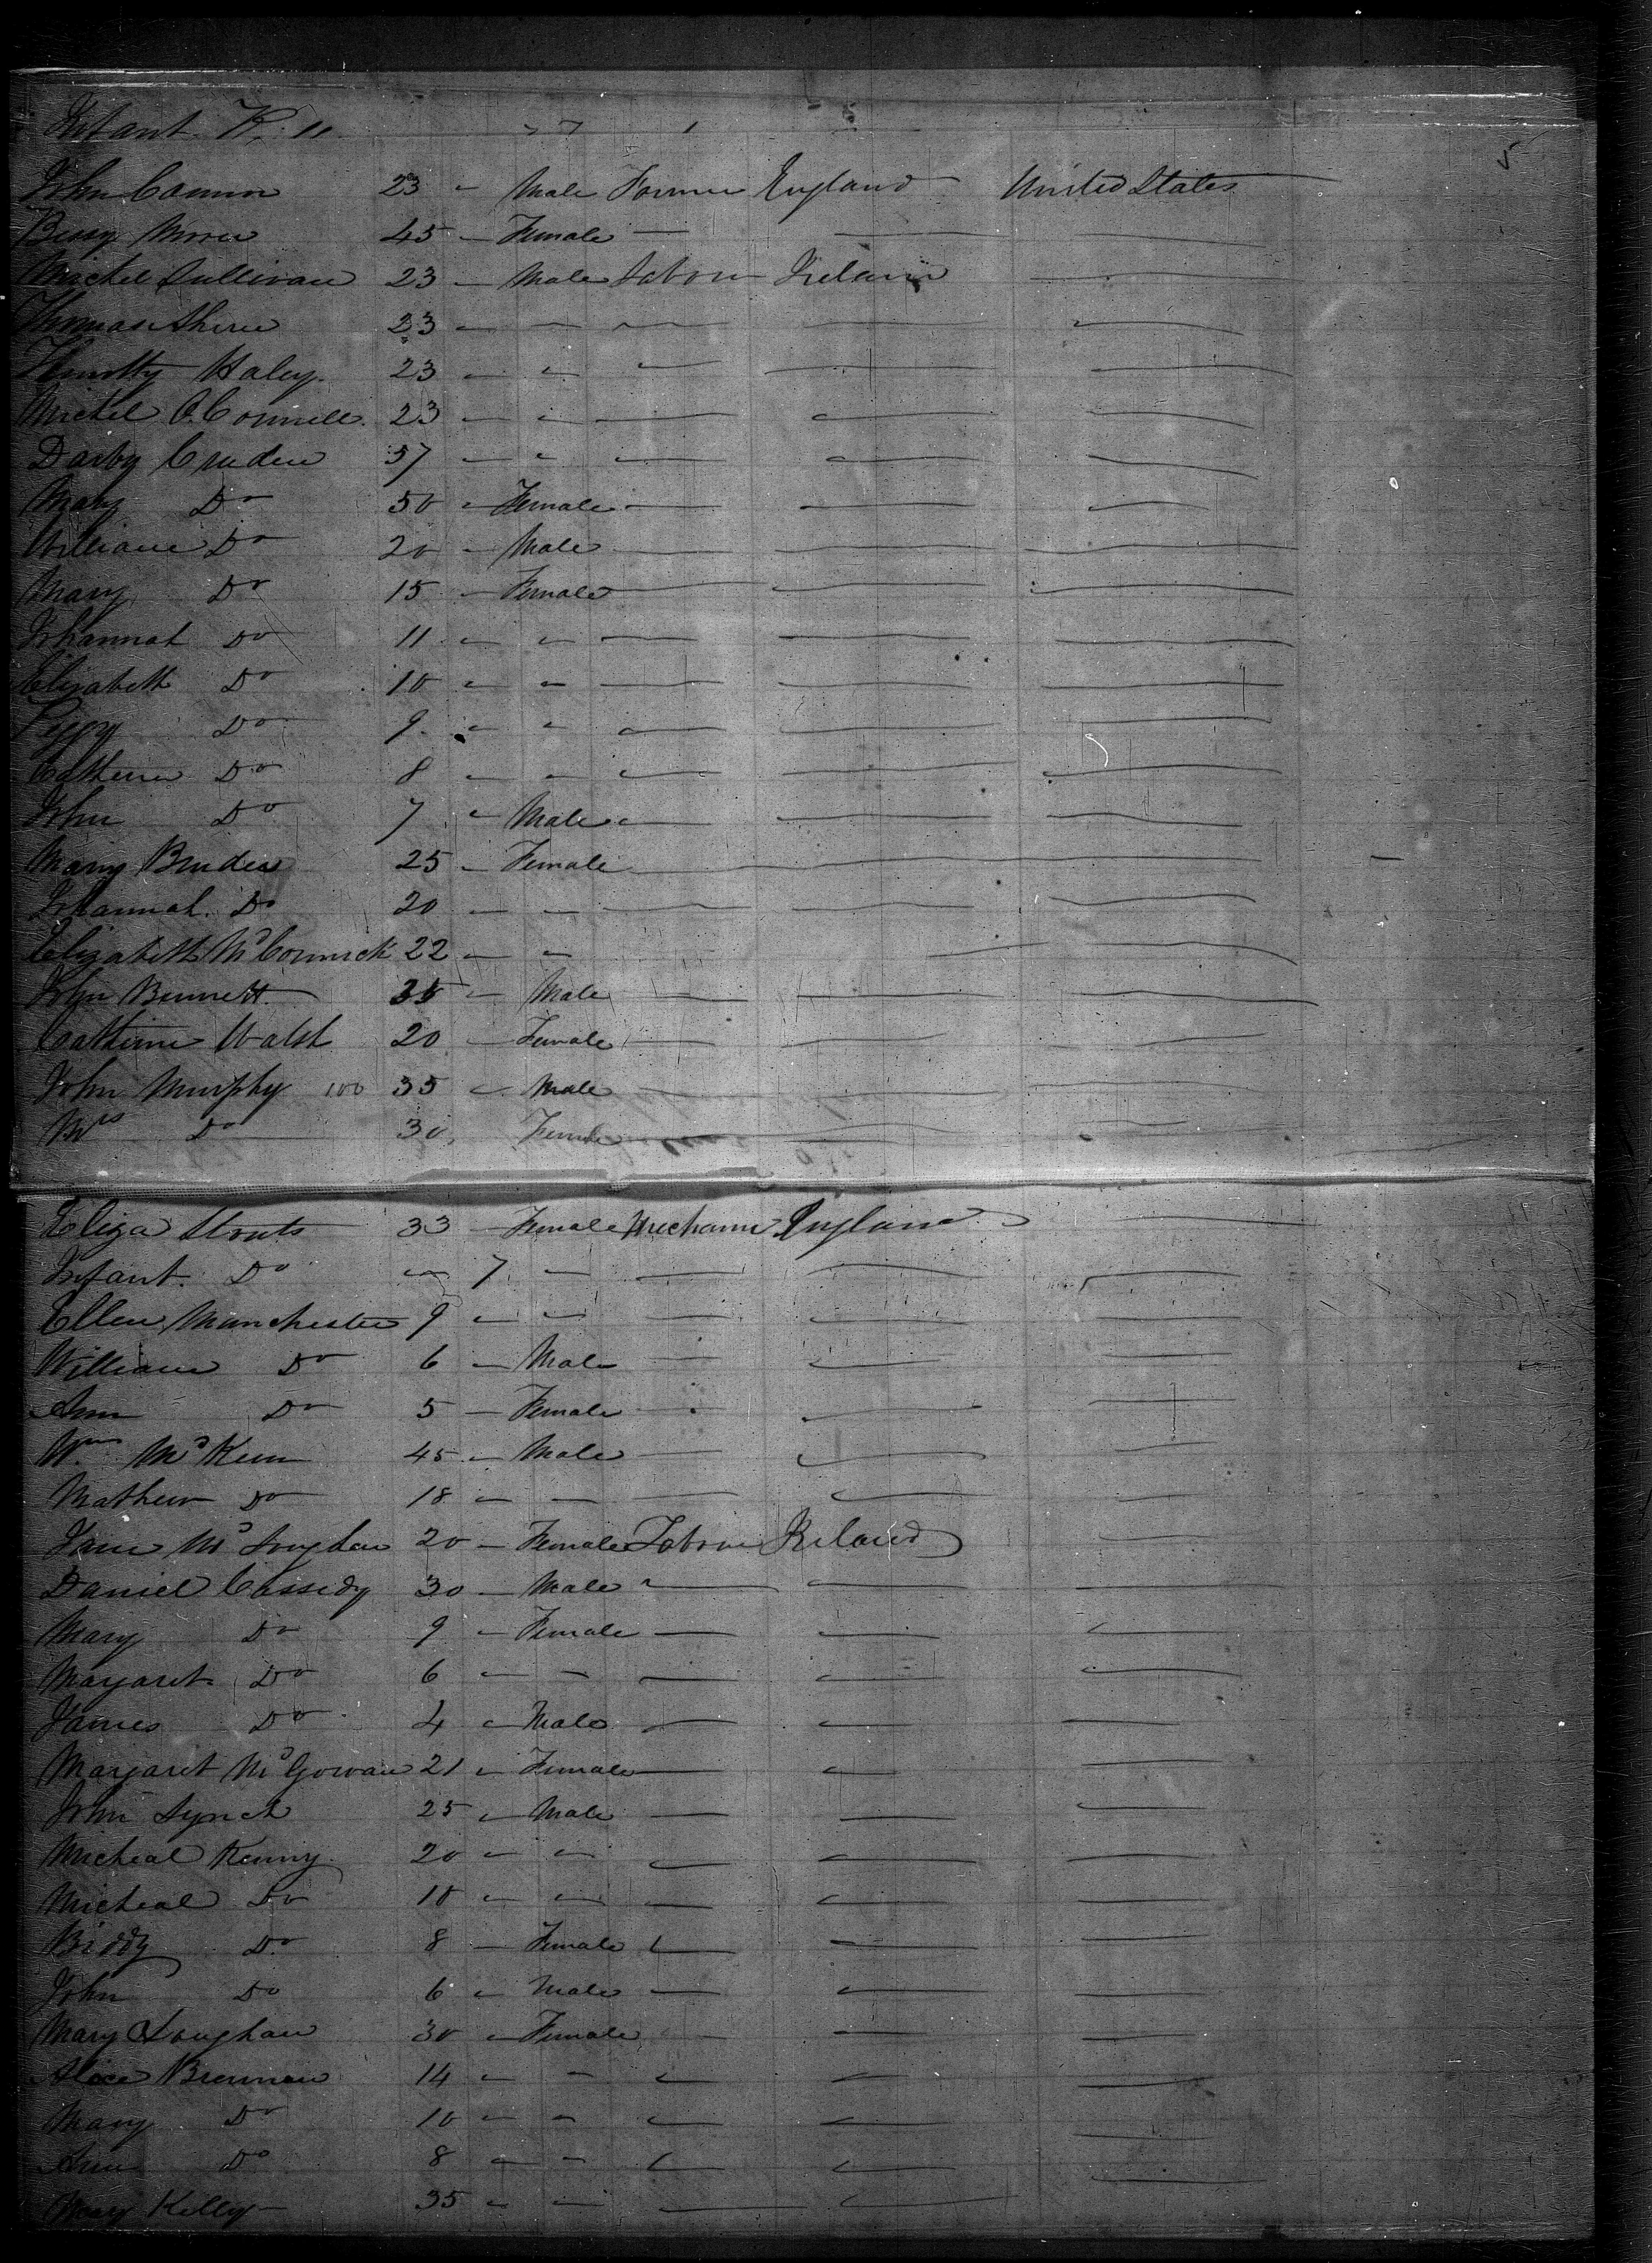 Infant
John Connor 23 - Male Farmer England United States
Bessy 45 - Female - - -
Michel Sullivan 23 - Male Labour Ireland -
Thomas 23 - - - - -
Timothy Haley 23 - - - - -
Michel O.Connell 23 - - - - -
Darby Cruden 57 - - - - -
Mary Do 50 - Female - - -
William Do 20 - Male - - -
Mary Do 15 - Female - - -
Johannah Do 11 - - - - -
Elizabeth Do 10 - - - - -
Peggy Do 9 - - - - -
Catherine Do 8 - - - - -
John Do 7 - Male - - -
Mary Bruden 25 - Female - - -
Johannah Do 20 - - - - -
Elizabeth McCormick 22 - - - -
John Bennett 35 - Male - - -
Catherine Walsh 20 - Female - - -
John Murphy 100 35 - Male - - -
Mrs Do 30 Female - - -
Eliza Strouts 33 - Female Mechanic England -
Infant Do - 7 - - - -
Ellen Manchester 9 - - - - -
William Do 6 - Male - - -
Ann Do 5 - Female - - -
Wm McKeen 45 - Male - - -
Mathew Do 18 - - - - -
Jane Mc 20 - Female Labour Ireland -
Daniel Cassidy 30 - Male - - -
Mary Do 9 - Female - - -
Margaret Do 6 - - - - -
James Do 4 - Male - - -
Margaret McGowan 21 - Female - - -
John Lynch 25 - Male - - -
Micheal Kenny 20 - - - - -
Micheal Do 10 - - - - -
Biddy Do 8 - Female - - -
John Do 6 - Male - - -
Mary Loughlan 30 - Female - -
Alice Brennan 14 - - - - -
Mary Do 10 - - - - -
Ann Do 8 - - - - -
Mary Kelly 35 - - - -